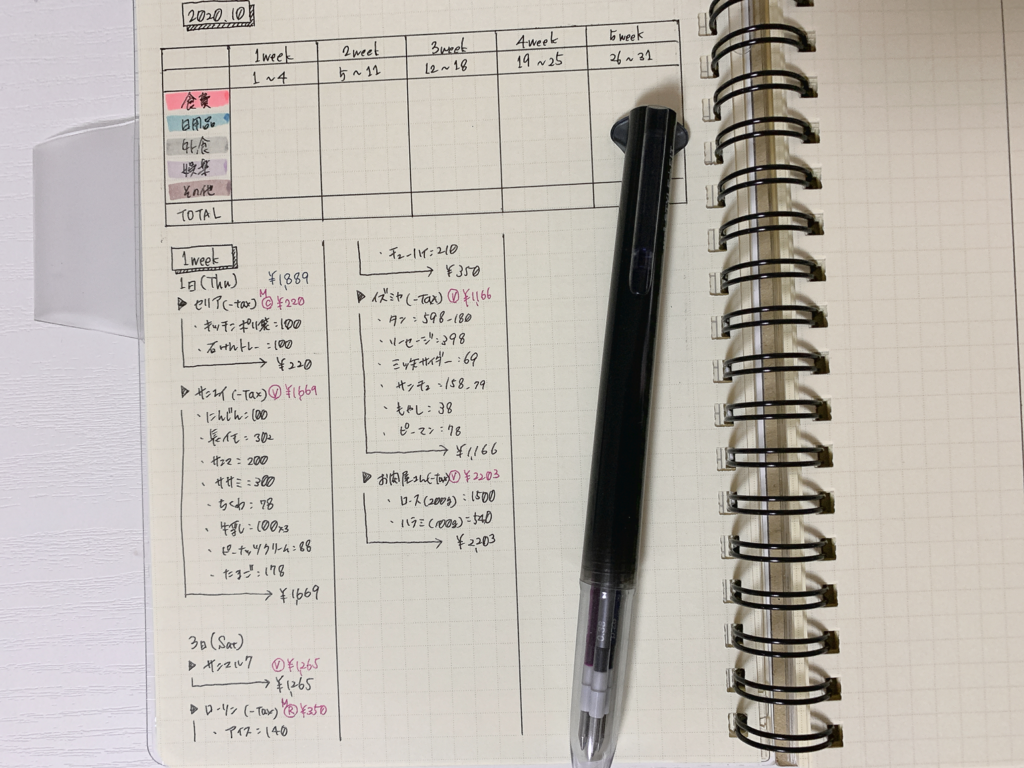 2020.10
1week 2week 3week 4week 5week
1~4 5~11 12~18 19~25 26~31
食費
日用品
外食
娯楽
その他
TOTAL
1week
1日(Thu) ¥1,889
▶ セリア(-tax) M C ¥220
・キッチンポリ袋:100
・石けんトレー:100
→ ¥220
▶ サンエイ(-Tax) V ¥1,669
・にんじん:100
・長イモ:302
・サンマ:200
・ササミ:300
・ちくわ:78
・牛乳:100×3
・ピーナッツクリーム:88
・たまご:178
→ ¥1,669
3日(Sat)
▶ サンマルク V ¥1,265
→ ¥1,265
▶ ローソン(-Tax) M R ¥350
・アイス:140
・チューハイ:210
→ ¥350
▶ イズミヤ(-Tax) V ¥1,166
・タン:598-180
・ソーセージ:398
・ミックサイダー:69
・サンチュ:158-79
・もやし:38
・ピーマン:78
→ ¥1,166
▶ お肉屋さん(-Tax) V ¥2,203
・ロース(200g):1500
・ハラミ(100g):540
→ ¥2,203